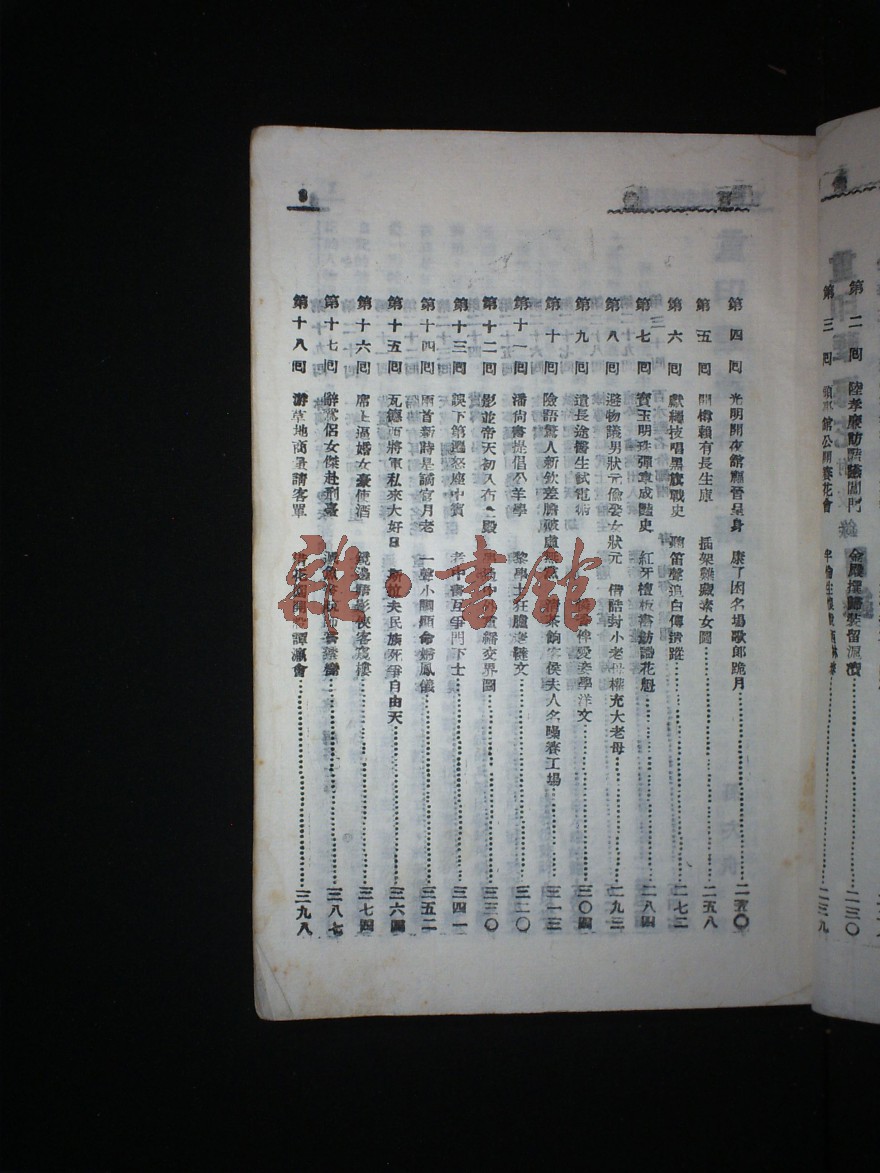 第二回 陸孝廉訪豔
第三回 領事館公開賽花會
二三〇
二三九
第四回 光明開夜館福晉呈身 康了困名場歌郎跪月 二五〇
第五回 開樽賴有長生庫 插架難藏素女圖 二五八
第六回 獻繩技唱黑旗戰史 聽笛聲追白傅遺蹤 二七二
第七回 寶玉明珠彈章成豔史 紅牙檀板畫舫識花魁 二八四
第八回 避物議男狀元偷娶女狀元 借誥封小老母權充大老母 二九三
第九回 遣長途醫生試電術 憐愛妾學洋文 三〇四
第十回 險語驚人新欽差膽破虛無黨 侯夫人名噪賽工場 三一三
第十一回 潘尙書提倡公羊學 黎學士狂臚老韃文 三二〇
第十二回 影並帝天初入布 殿 重繙交界圖 三三〇
第十三回 誤下第遷怒座中賓 考中書互爭門下士 三四一
第十四回 兩首新詩是謫官月老 一聲小調顯命婦鳳儀 三五二
第十五回 瓦德西將軍私來大好日 斯拉夫民族死爭自由天 三六四
第十六回 席上逼婚女豪使酒 鏡邊語影俠客窺樓 三七四
第十七回 辭鴛侶女傑赴刑臺 三八七
第十八回 游草地商量請客單 借花園開設譚瀛會 三九八
雜·書館